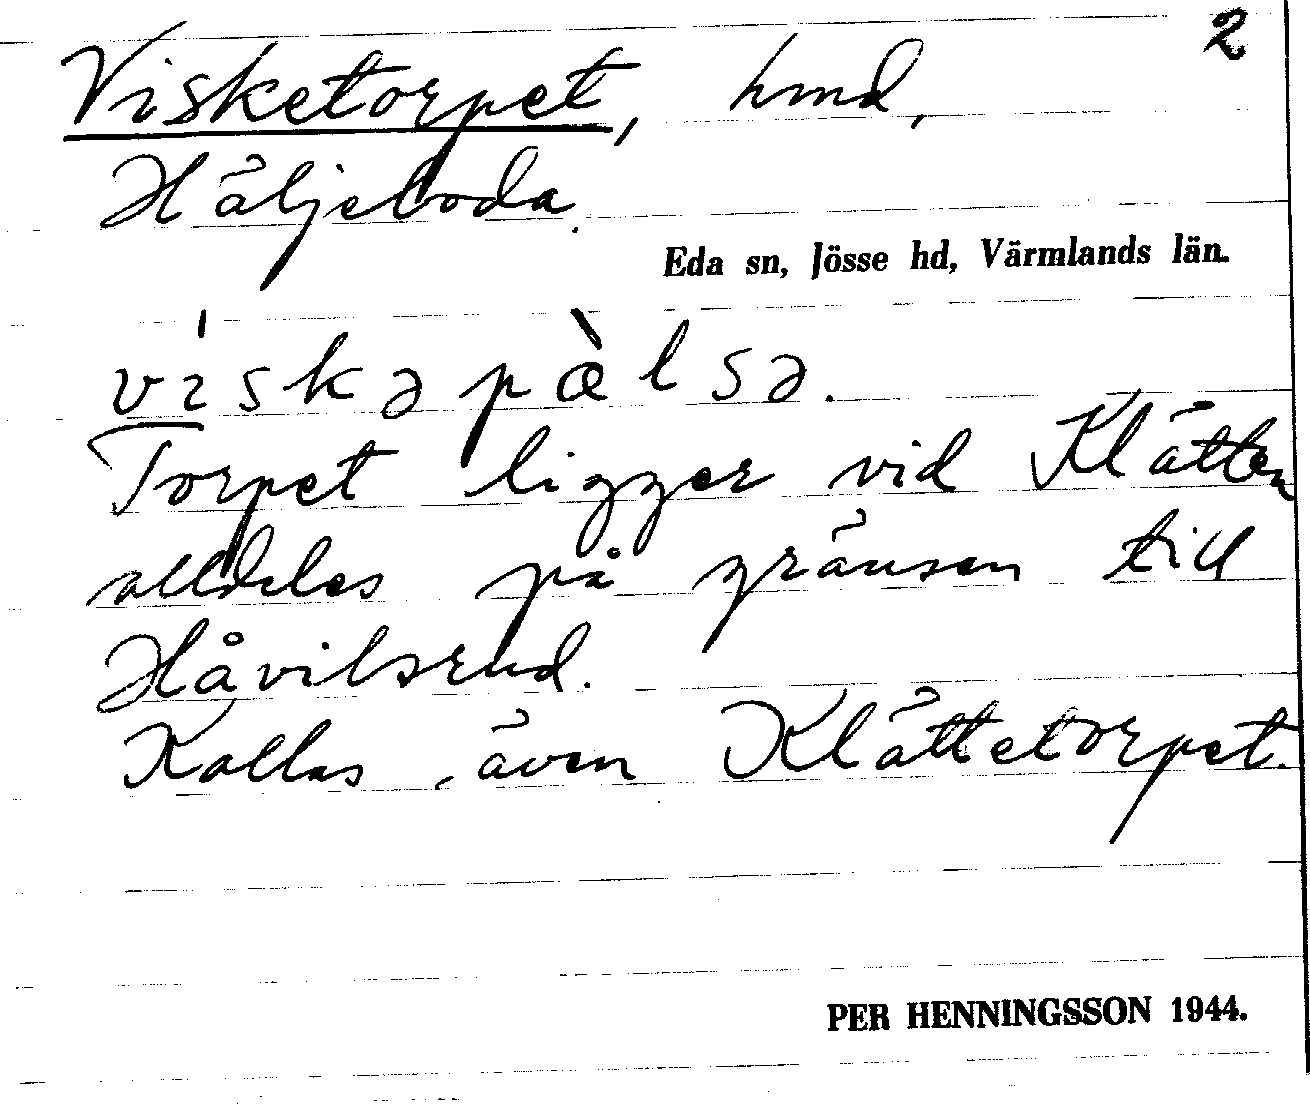 2
Visketorpet, hmd,
Häljeboda.
Eda sn, Jösse hd, Värmlands län.
vískəpæ̀lsə.
Torpet ligger vid Klätten
alldeles på gränsen till
Håvilsrud.
Kallas även Klättetorpet.
PER HENNINGSSON 1944.